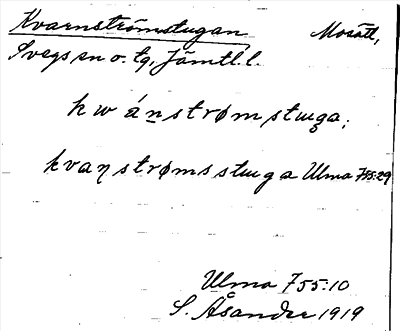 Kvarnströmstugan Mosätt,
Svegs sn o. tg, Jämtl. l.
kwánstrømstuga;
kvaηstrømsstuga Ulma 755:29
Ulma 755:10
S. Åsander 1919